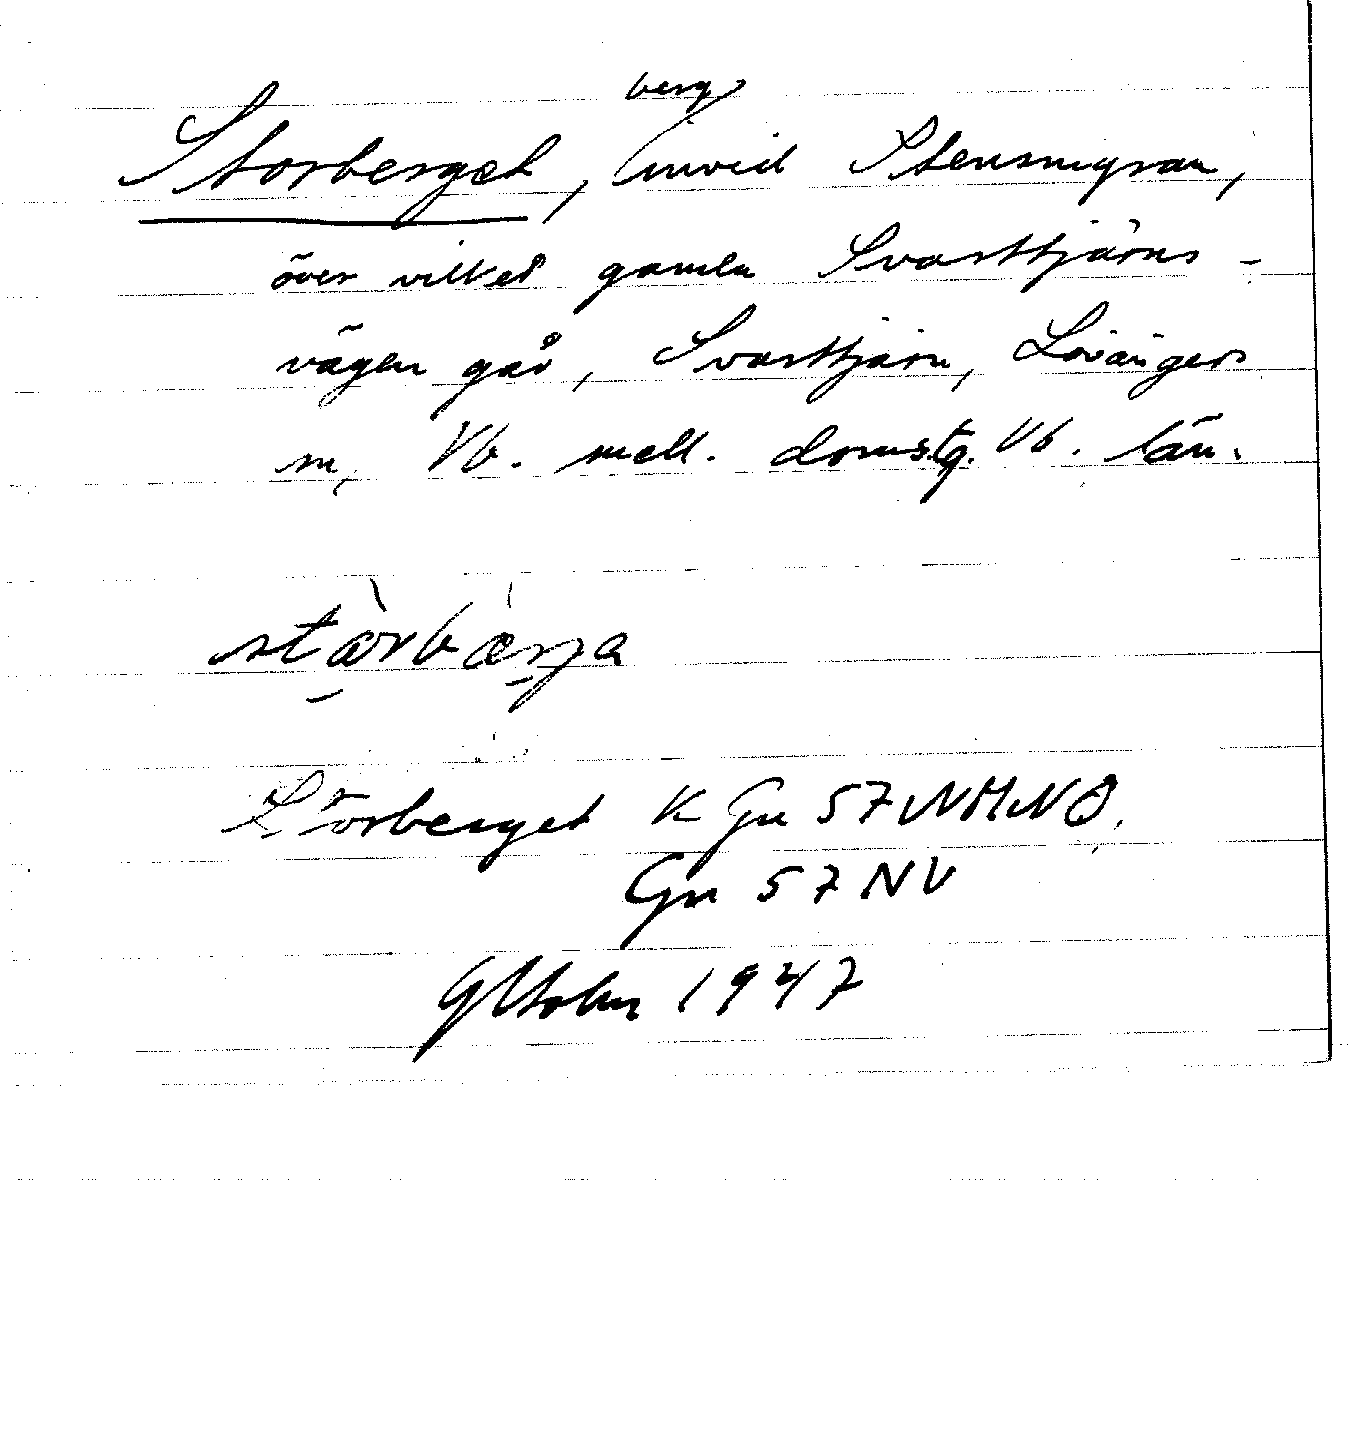 Storberget, berg invid Stensmyran,
över vilket gamla Svarttjärns-
vägen går, Svarttjärn, Lövångers
sn, Vb. mell. domstg. Vb. län.
stòrbær̀ja
Storberget K Gn 57 NMNO.
Gn 57 NV
1947